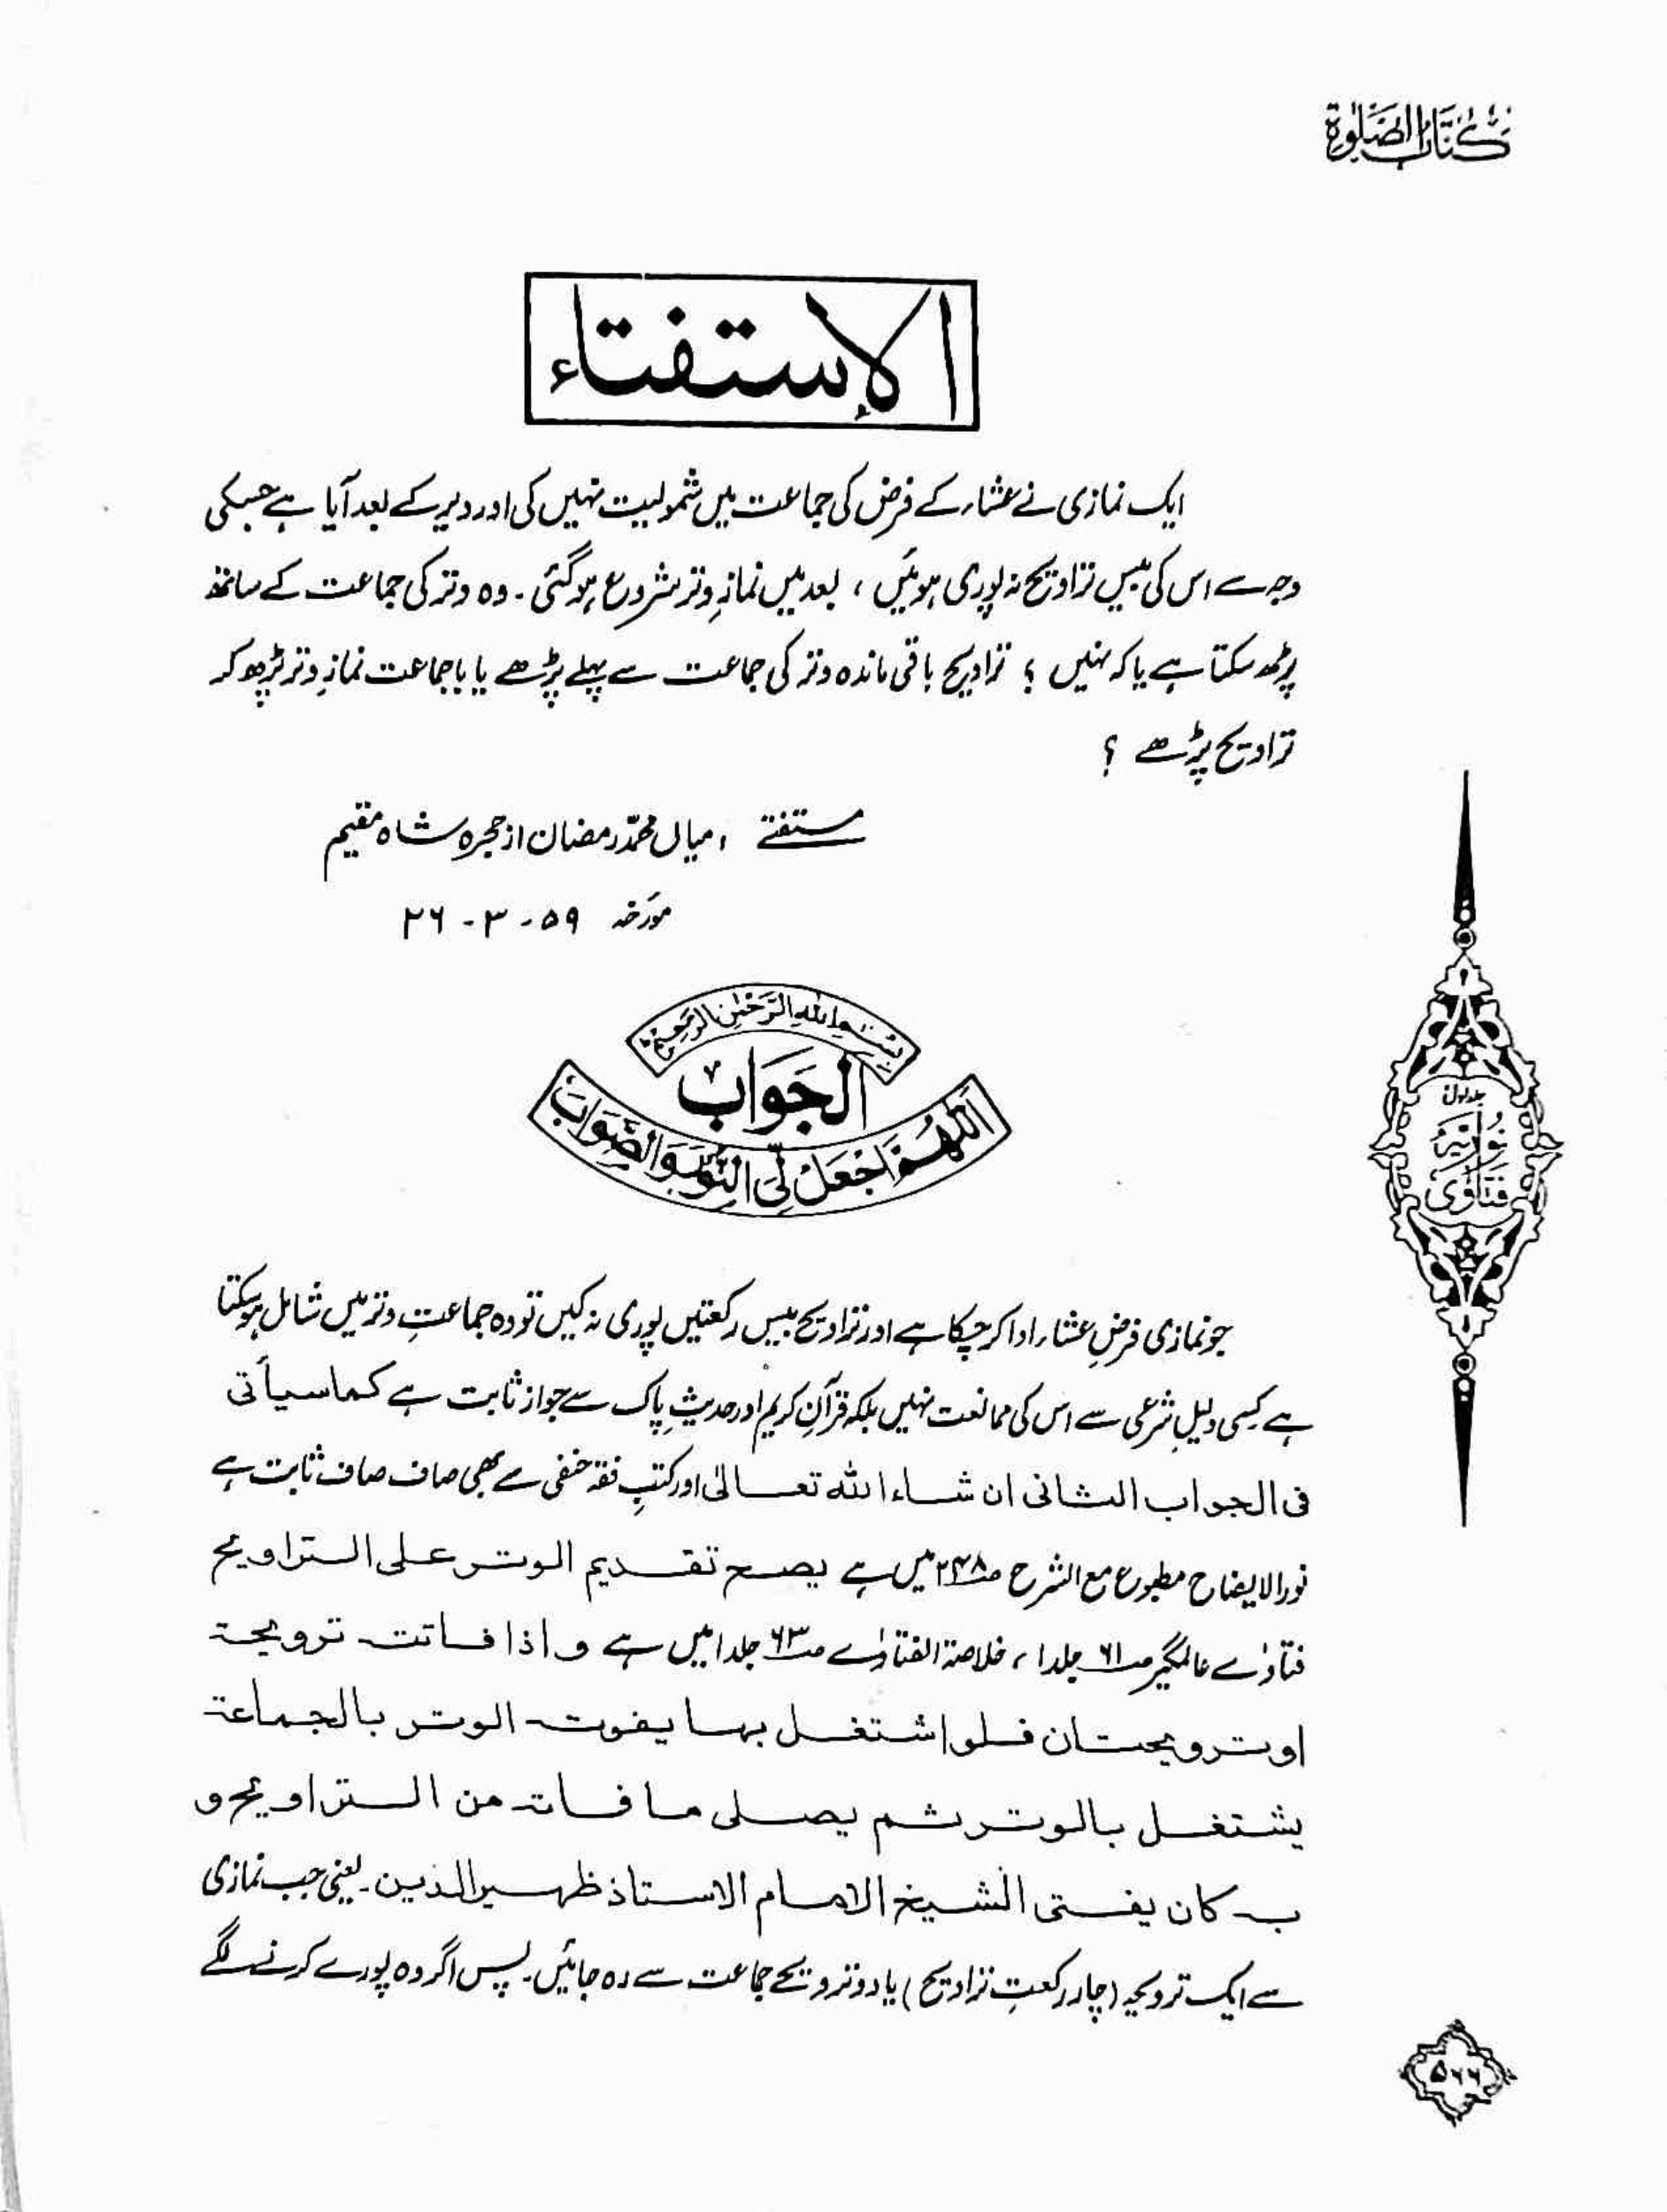 كتاب الصلوة
الإستفتاء
ایک نمازی نے عشاء کے فرض کی جماعت میں شمولیت نہیں کی اور دیر کے بعد آیا ہے جسکی
وجہ سے اس کی بیس تراویح نہ پوری ہوئیں ، بعد میں نمازِ وتر شروع ہوگئی ۔ وہ وتر کی جماعت کے ساتھ
پڑھ سکتا ہے یا کہ نہیں ؟ تراویح باقی ماندہ وتر کی جماعت سے پہلے پڑھے یا باجماعت نمازِ وتر پڑھ کر
تراویح پڑھے ؟
مستفتے : میاں محمد رمضان از حجرہ شاہ مقیم
مورخہ ۵۹-۳-۲۶
بسم الله الرحمن الرحيم
الجواب
اللهم اجعل لى النور والصواب
جو نمازی فرضِ عشاء ادا کر چکا ہے اور تراویح بیس رکعتیں پوری نہ کیں تو وہ جماعتِ وتر میں شامل ہوسکتا
ہے کسی دلیلِ شرعی سے اس کی ممانعت نہیں بلکہ قرآنِ کریم اور حدیثِ پاک سے جواز ثابت ہے كما سيأتى
فى الجواب الثانى ان شاء الله تعالىٰ اور کتبِ فقہ حنفی سے بھی صاف صاف ثابت ہے
نورالایضاح مطبوع مع الشرح صـ۲۴۸ میں ہے يصح تقديم الوتر على التراويح
فتاوٰے عالمگیر صـ۶۱ جلد۱ ، خلاصۃ الفتاوٰے صـ۶۳ جلد۱ میں ہے واذا فاتت ترويحة
او ترويحتان فلو اشتغل بها يفوت الوتر بالجماعة
يشتغل بالوتر ثم يصلى ما فات من التراويح و
به كان يفتى الشيخ الامام الاستاذ ظهير الدين ۔ یعنی جب نمازی
سے ایک ترویحہ (چار رکعتِ تراویح) یا دو ترویحے جماعت سے رہ جائیں ۔ پس اگر وہ پورے کرنے لگے
جلد اول
نوریہ
فتاوٰی
۵۶۶